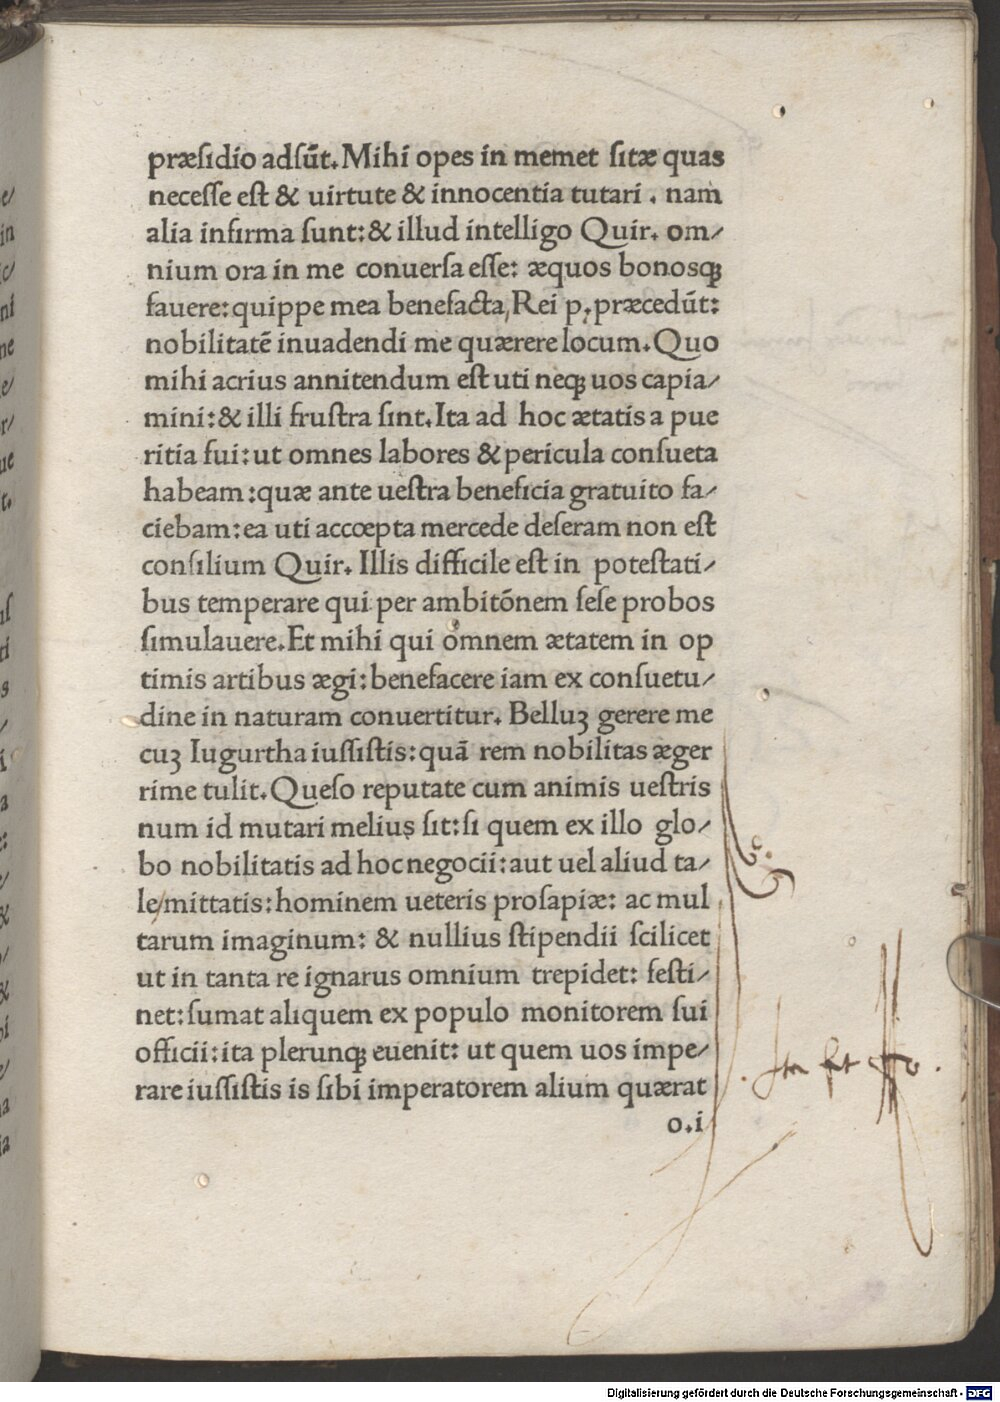 præſidio adſūt. Mihi opes in memet ſitæ quas
neceſſe eſt & uirtute & innocentia tutari . nam
alia infirma ſunt: & illud intelligo Quir. om/
nium ora in me conuerſa eſſe: æquos bonosqꝫ
fauere: quippe mea benefacta, Rei p. præcedūt:
nobilitatē inuadendi me quærere locum. Quo
mihi acrius annitendum eſt uti neqꝫ uos capia/
mini: & illi fruſtra ſint. Ita ad hoc ætatis a pue
ritia fui: ut omnes labores & pericula conſueta
habeam: quæ ante ueſtra beneficia gratuito fa/
ciebam: ea uti accœpta mercede deſeram non eſt
conſilium Quir. Illis difficile eſt in poteſtati/
bus temperare qui per ambitōnem ſeſe probos
ſimulauere. Et mihi qui omnem ætatem in op
timis artibus ægi: benefacere iam ex conſuetu/
dine in naturam conuertitur. Belluꝫ gerere me
cuꝫ Iugurtha iuſſiſtis: quā rem nobilitas æger
rime tulit. Queſo reputate cum animis ueſtris
num id mutari melius ſit: ſi quem ex illo glo/
bo nobilitatis ad hoc negocii: aut uel aliud ta/
le/mittatis: hominem ueteris proſapiæ: ac mul
tarum imaginum: & nullius ſtipendii ſcilicet
ut in tanta re ignarus omnium trepidet: feſti/
net: ſumat aliquem ex populo monitorem ſui
officii: ita plerunqꝫ euenit: ut quem uos impe/
rare iuſſiſtis is ſibi imperatorem alium quærat
o.i
Digitalisierung gefördert durch die Deutsche Forschungsgemeinschaft - DFG